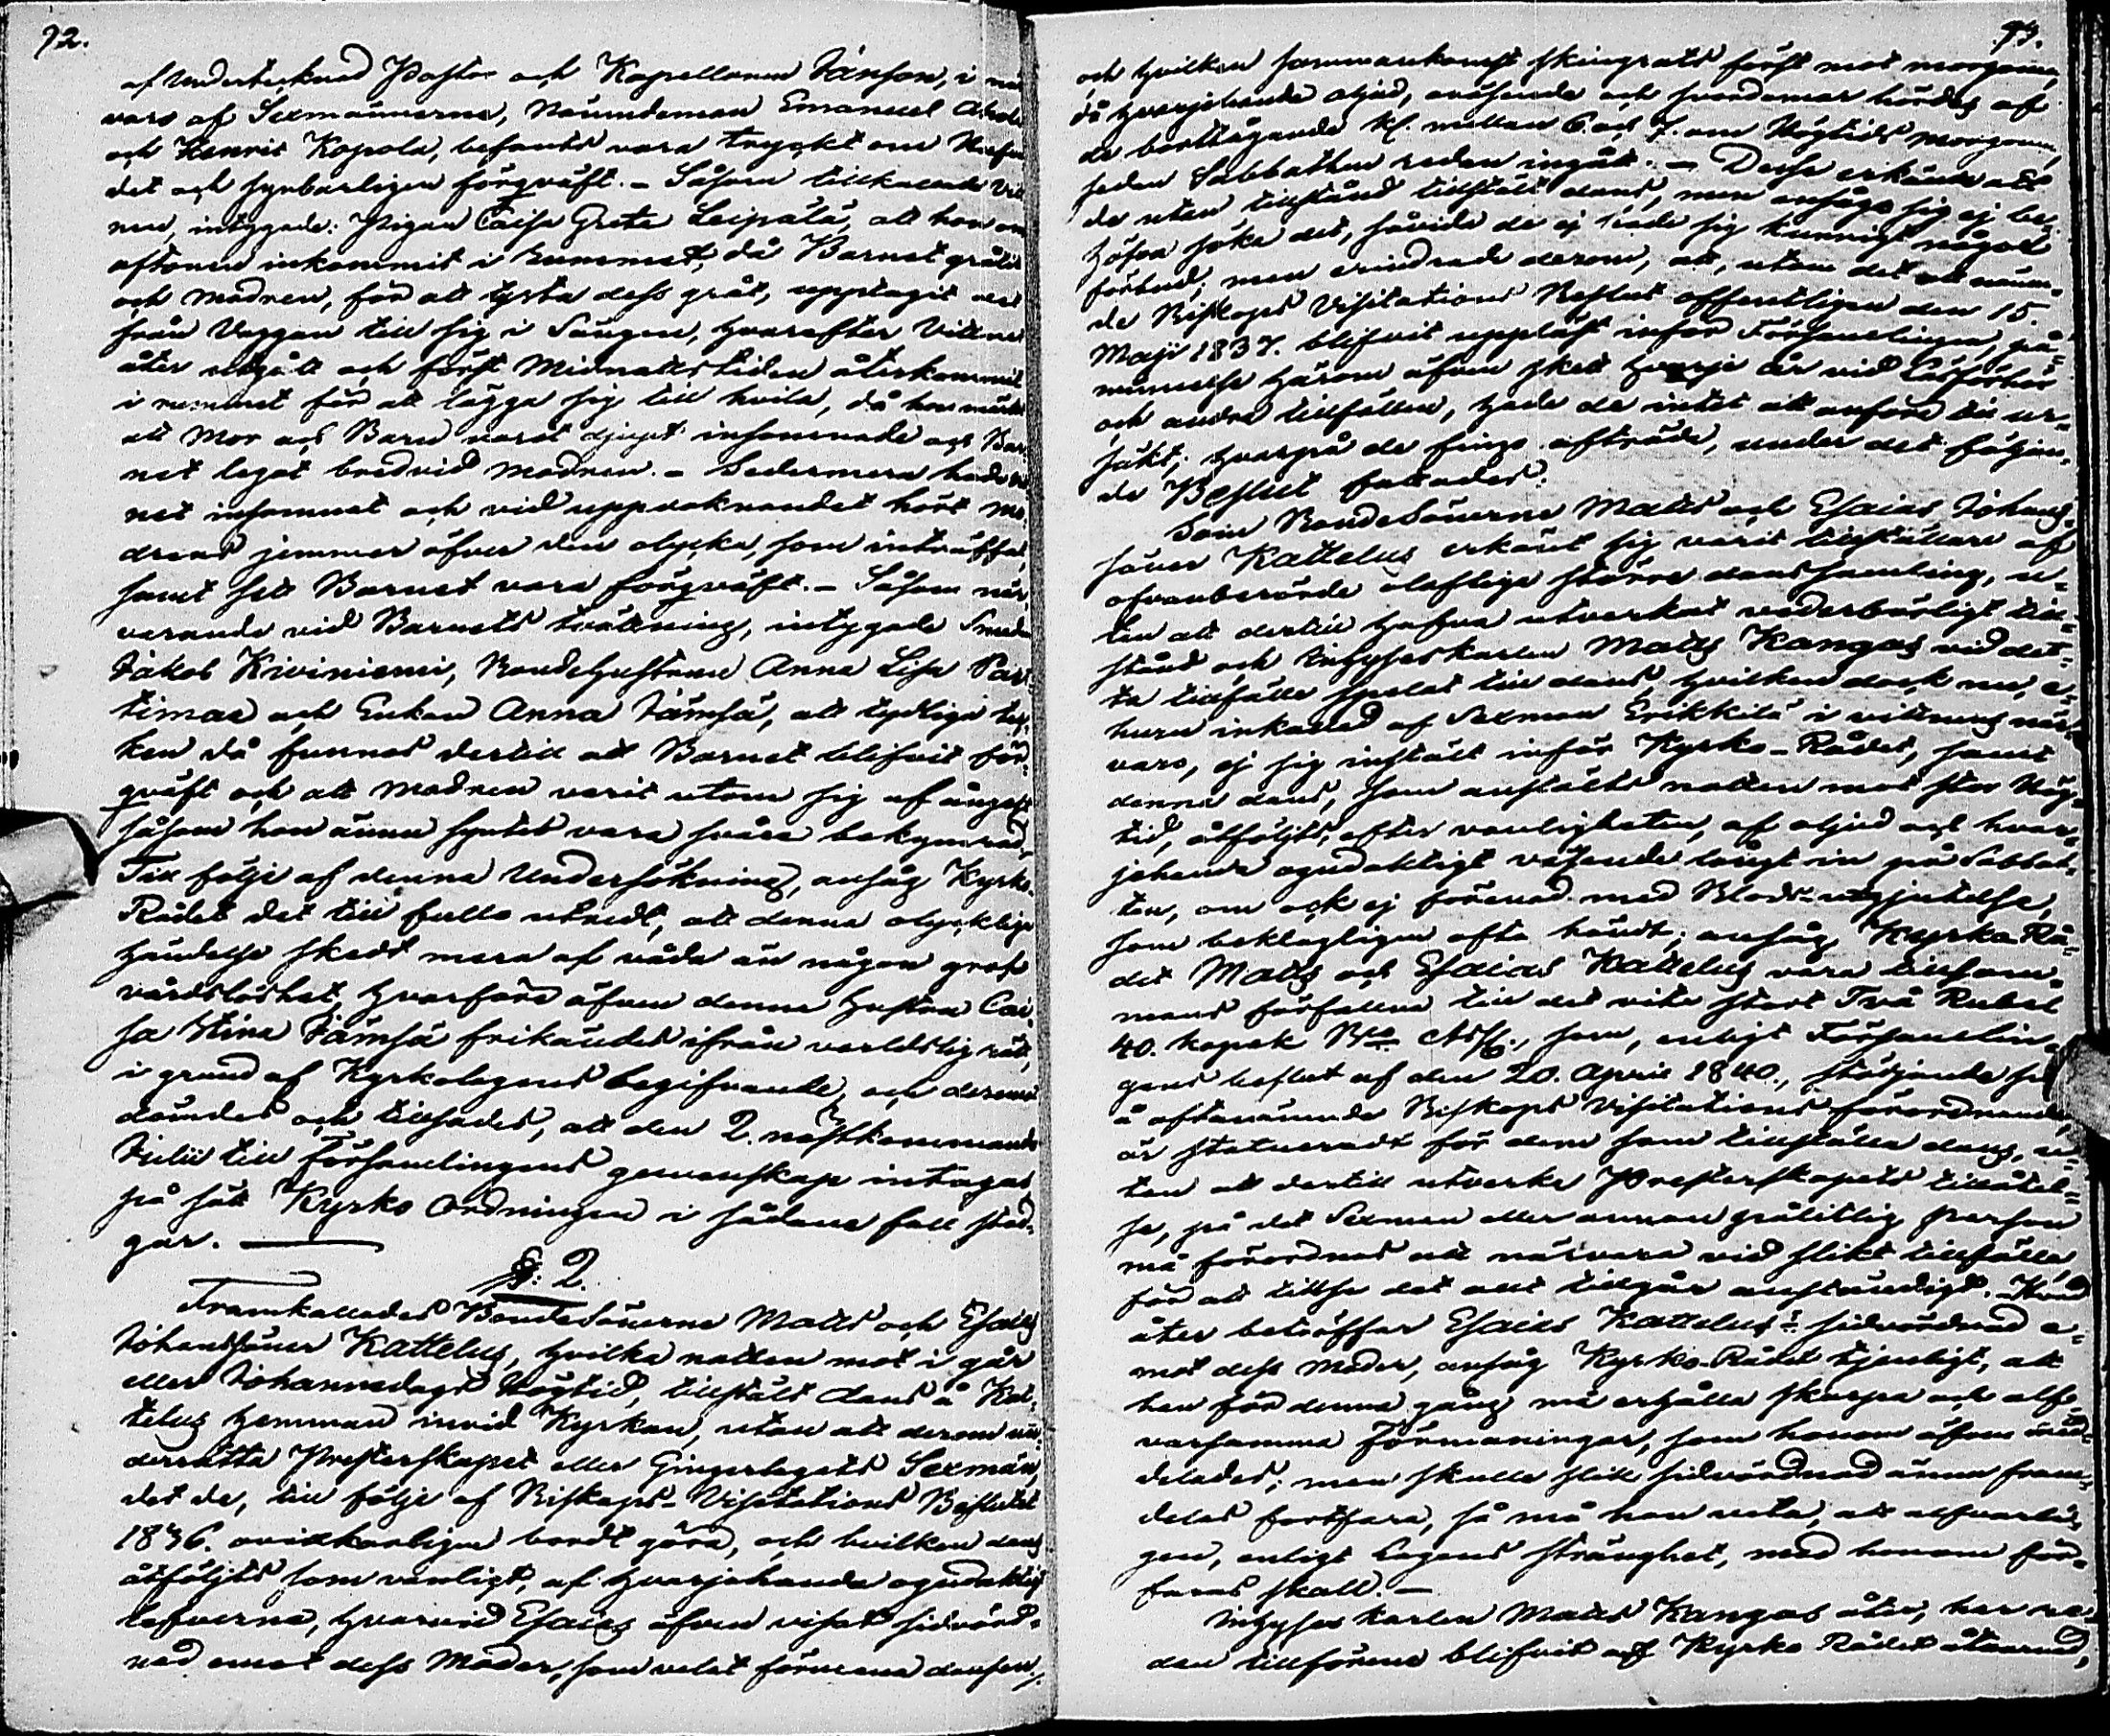 92.
af Undertecknad Pastor och Kapellanen Jänson, i när
varo af Sexmännerne, Nämndeman Emanuel
och Henric Kopola, befunts vara tryckt om Hufvu
det och synbarligen förqväft. - Såsom tillkallade Vitt
nen, intygade: Pigan Caisa Greta Leipälä, att hon om
aftonen inkommit i Rummet, då Barnet gråtit
och Modren, för att tysta dess gråt, upptagit det
från Vaggan till sig i Sängen, hvarefter Vittnet
åter utgått och först Midnattstiden återkommit
i rummet för att lägga sig till hvila, då hon märkt
att Mor och Barn varit djupt insomnade och Bar
net legat bredvid Modren. - Sedermera hade Vitt
net insomnat och vid uppvaknandet hört Mo-
drens jemmer öfver den olycka, som inträffat,
samt sett Barnet vara förqväft. - Såsom när-
varande vid Barnets tvättning, intygade Smeden
Jakob Kiviniemi, Bondehustrun Anna Lisa Par-
timaa och Enkan Anna Jämsä, att tydliga tec-
ken då funnos dertill att Barnet blifvit för-
qväft och att Modren varit utom sig af ångest
såsom hon ännu syntes vara svåra bekymrad.
Till följe af denna Undersökning, ansåg Kyrko-
Rådet det till fullo utredt, att denna olyckliga
händelse skedt mera af våda än någon grof
vårdslöshet, hvarföre äfven denna hustru Cai-
sa Stina Jämsä frikändes ifrån verldslig rätt,
i grund af Kyrkolagens begifvande, och deremot
dömdes och tillsades, att den 2. nästkommande
Julii till Församlingens gemenskap intagas
på sätt Kyrko Ordningen i sådane fall stad-
gar.
§: 2.
Framkallades BondeSönerne Matts och Esaias
Johanssöner Kattelus, hvilka natten mot i går
eller Johannedags Högtid, tillstält dans å Kat-
telus hemman invid Kyrkan, utan att derom un-
derrätta Presterskapet eller Gingerlagets Sexmän,
det de, till följe af Biskops-Visitations Beslutet
1836. ovilkorligen bordt göra, och hvilken dans
åtföljts som vanligt, af hvarjehanda ogudaktigt
lefverne, hvarvid Esaias äfven visat sidvörd-
nad emot dess Moder, som velat förmena dansen,
93.
och hvilken sammankomst skingrats först mot morgonen,
då hvarjehanda oljud, oväsende och svordomar hördes af
de borttågande kl. mellan 6. och 7. om Högtids morgonen,
sedan Sabbathen redan ingått. - Desse erkände att
de utan tillstånd tillstält dans, men ansågo sig ej be-
höfva söka det, såvida de ej hade sig kunnigt något
förbud; men erindrade derom, att, utom det att nämn-
de Biskops Visitations Beslut offentligen den 15.
Maji 1837. blifvit uppläst inför Församlingen, på-
minnelse härom äfven sket hvarje år vid Läsförhör
och andra tillfällen, hade de intet att anföra till ur-
säkt; hvarpå de fingo afträda, under det följan-
de Beslut fattades.
Som BondeSönerne Matts och Esaias Johans-
söner Kattelus erkänt sig varit tillställare af
ofvanberörde olaflige större danssamling, u-
tan att dertill hafva utverkat vederbörligt till-
stånd och Inhyseskarlen Matts Kangas vid det-
ta tillfälle spelat till dans, hvilken dock nu, e-
huru inkallad af Sexman Erikkilä i vittnens när-
varo, ej sig instält inför Kyrko-Rådet, samt
denna dans, som anstälts natten mot stor Hög-
tid, åtföljts, efter vanligheten, af oljud och hvar-
jehanda ogudaktigt väsende långt in på Sabbat-
ten, om ock ej förenad med Blods-utgjutelse,
som beklagligen ofta händt; ansåg Kyrko-Rå-
det Matts och Esaias Kattelus vara tillsam-
mans förfallna till det vite stort Två Rubel
40. kopek Bco Ass., som, enligt Församlin-
gens beslut af den 20. April 1840., stödjande sig
å oftanämnde Biskops Visitations förordnande,
är statueradt för dem som tillställa dans, u-
tan att dertill utverka Presterskapets tillåtel-
se, på det Sexman eller annan pålitlig person
må förordnas att närvara vid slikt tillfälle,
för att tillse det allt tillgår anständigt. Hvad
åter beträffar Esaias Kattelus's sidvördnad e-
mot dess Moder, ansåg Kyrko-Rådet tjenligt, att
han för denna gång må erhålla skarpa och alf-
varsamma förmaningar, som honom äfven med-
delades; men skulle slik sidvördnad ännu fram-
deles fortfara, så må han veta, att alfvarli-
gen, enligt Lagens stränghet, med honom för-
faras skall. -
Inhyses karlen Matts Kangas åter, har re-
dan tillförene blifvit af Kyrko Rådet åtvarnad,